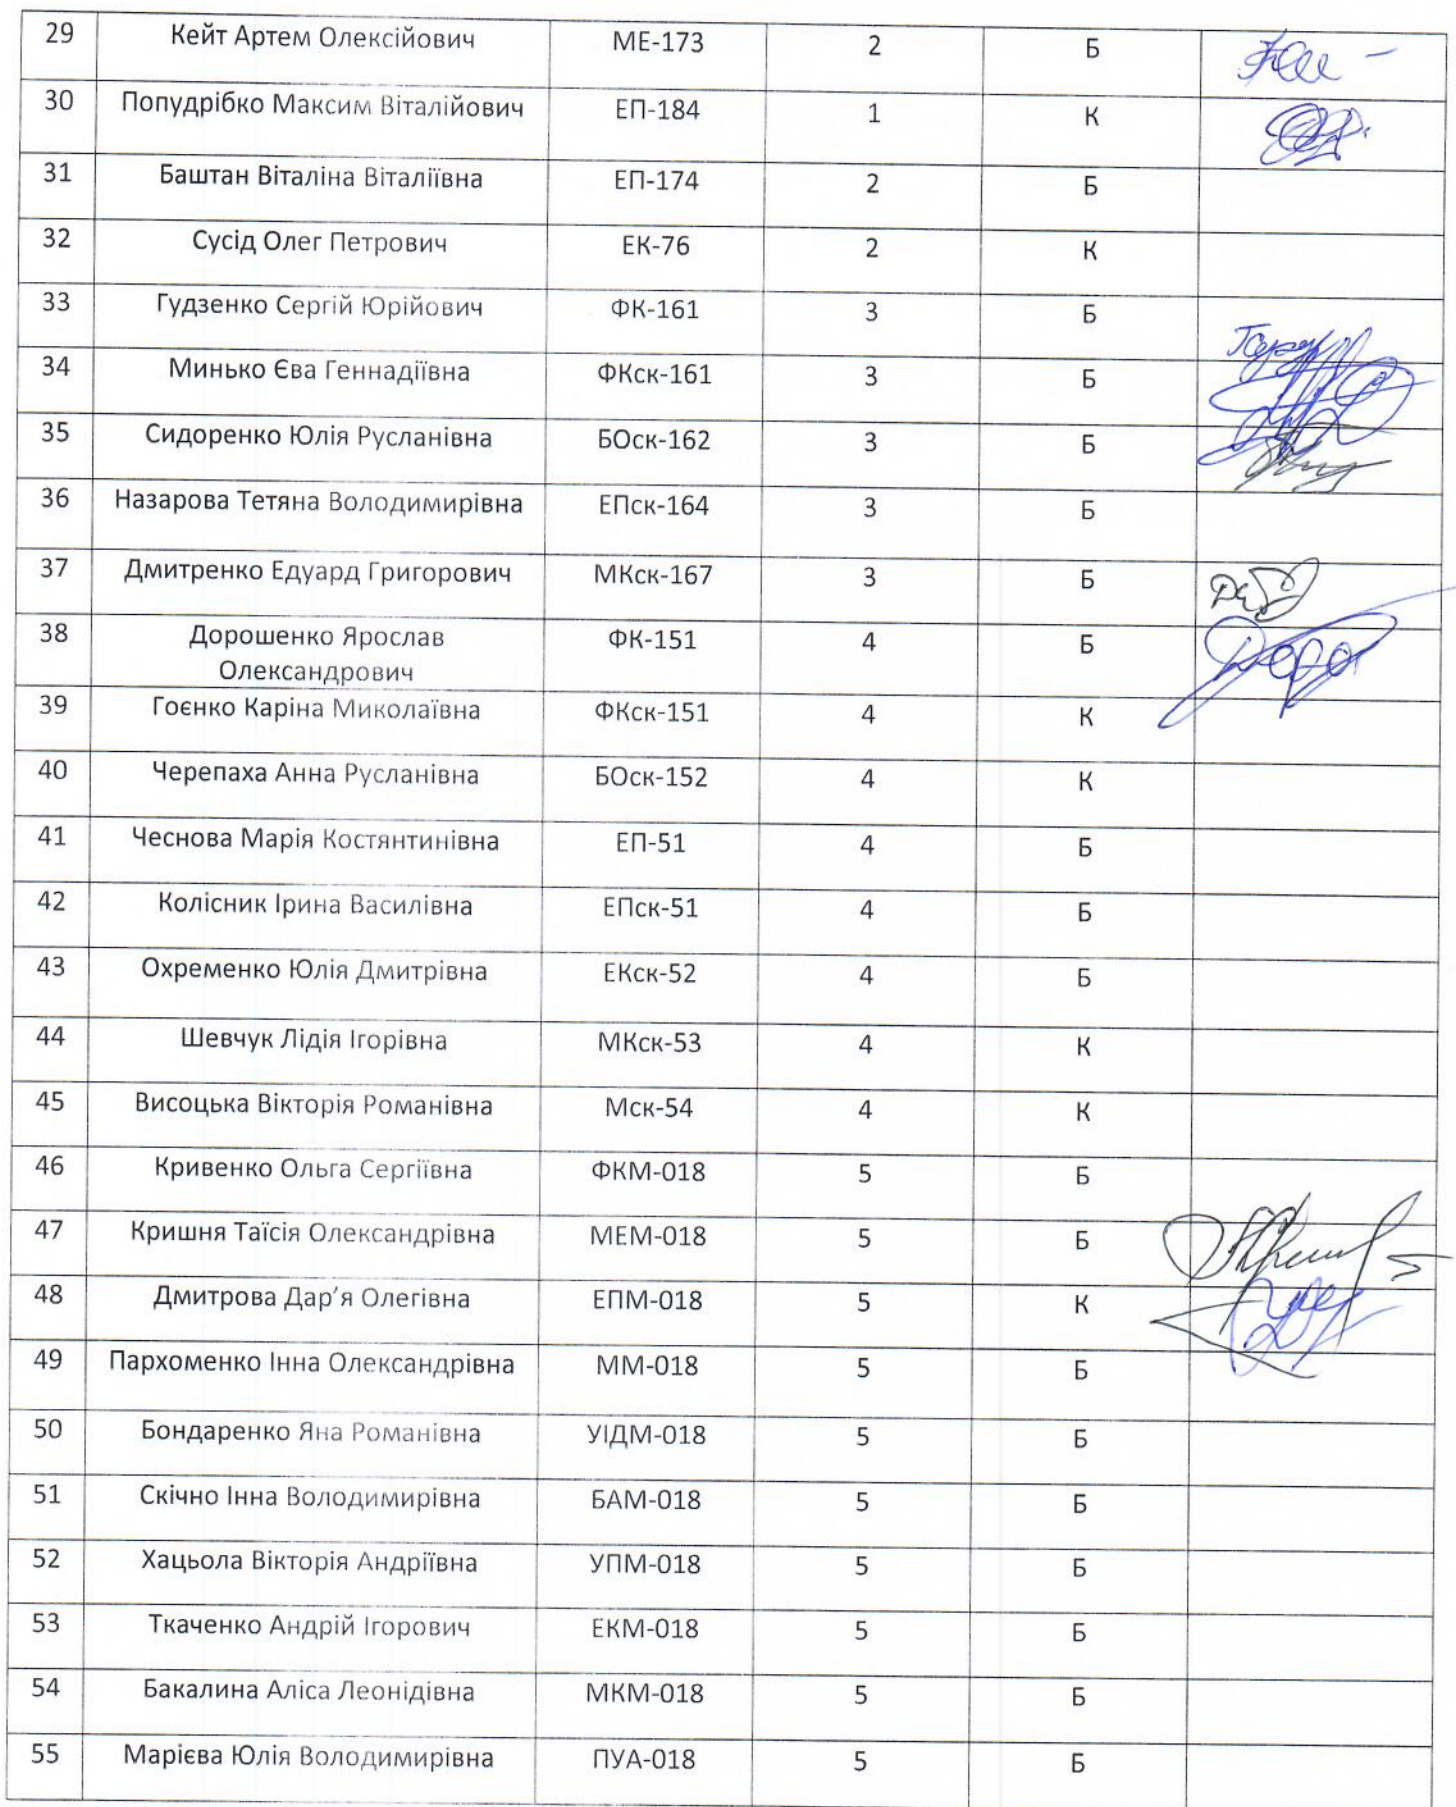 29 Кейт Артем Олексійович МЕ-173 2 Б
30 Попудрібко Максим Віталійович ЕП-184 1 К
31 Баштан Віталіна Віталіївна ЕП-174 2 Б
32 Сусід Олег Петрович ЕК-76 2 К
33 Гудзенко Сергій Юрійович ФК-161 3 Б
34 Минько Єва Геннадіївна ФКск-161 3 Б
35 Сидоренко Юлія Русланівна БОск-162 3 Б
36 Назарова Тетяна Володимирівна ЕПск-164 3 Б
37 Дмитренко Едуард Григорович МКск-167 3 Б
38 Дорошенко Ярослав ФК-151 4 Б
Олександрович
39 Гоєнко Каріна Миколаївна ФКск-151 4 К
40 Черепаха Анна Русланівна БОск-152 4 К
41 Чеснова Марія Костянтинівна ЕП-51 4 Б
42 Колісник Ірина Василівна ЕПск-51 4 Б
43 Охременко Юлія Дмитрівна ЕКск-52 4 Б
44 Шевчук Лідія Ігорівна МКск-53 4 К
45 Висоцька Вікторія Романівна Мск-54 4 К
46 Кривенко Ольга Сергіївна ФКМ-018 5 Б
47 Кришня Таїсія Олександрівна МЕМ-018 5 Б
48 Дмитрова Дар’я Олегівна ЕПМ-018 5 К
49 Пархоменко Інна Олександрівна ММ-018 5 Б
50 Бондаренко Яна Романівна УІДМ-018 5 Б
51 Скічно Інна Володимирівна БАМ-018 5 Б
52 Хацьола Вікторія Андріївна УПМ-018 5 Б
53 Ткаченко Андрій Ігорович ЕКМ-018 5 Б
54 Бакалина Аліса Леонідівна МКМ-018 5 Б
55 Марієва Юлія Володимирівна ПУА-018 5 Б